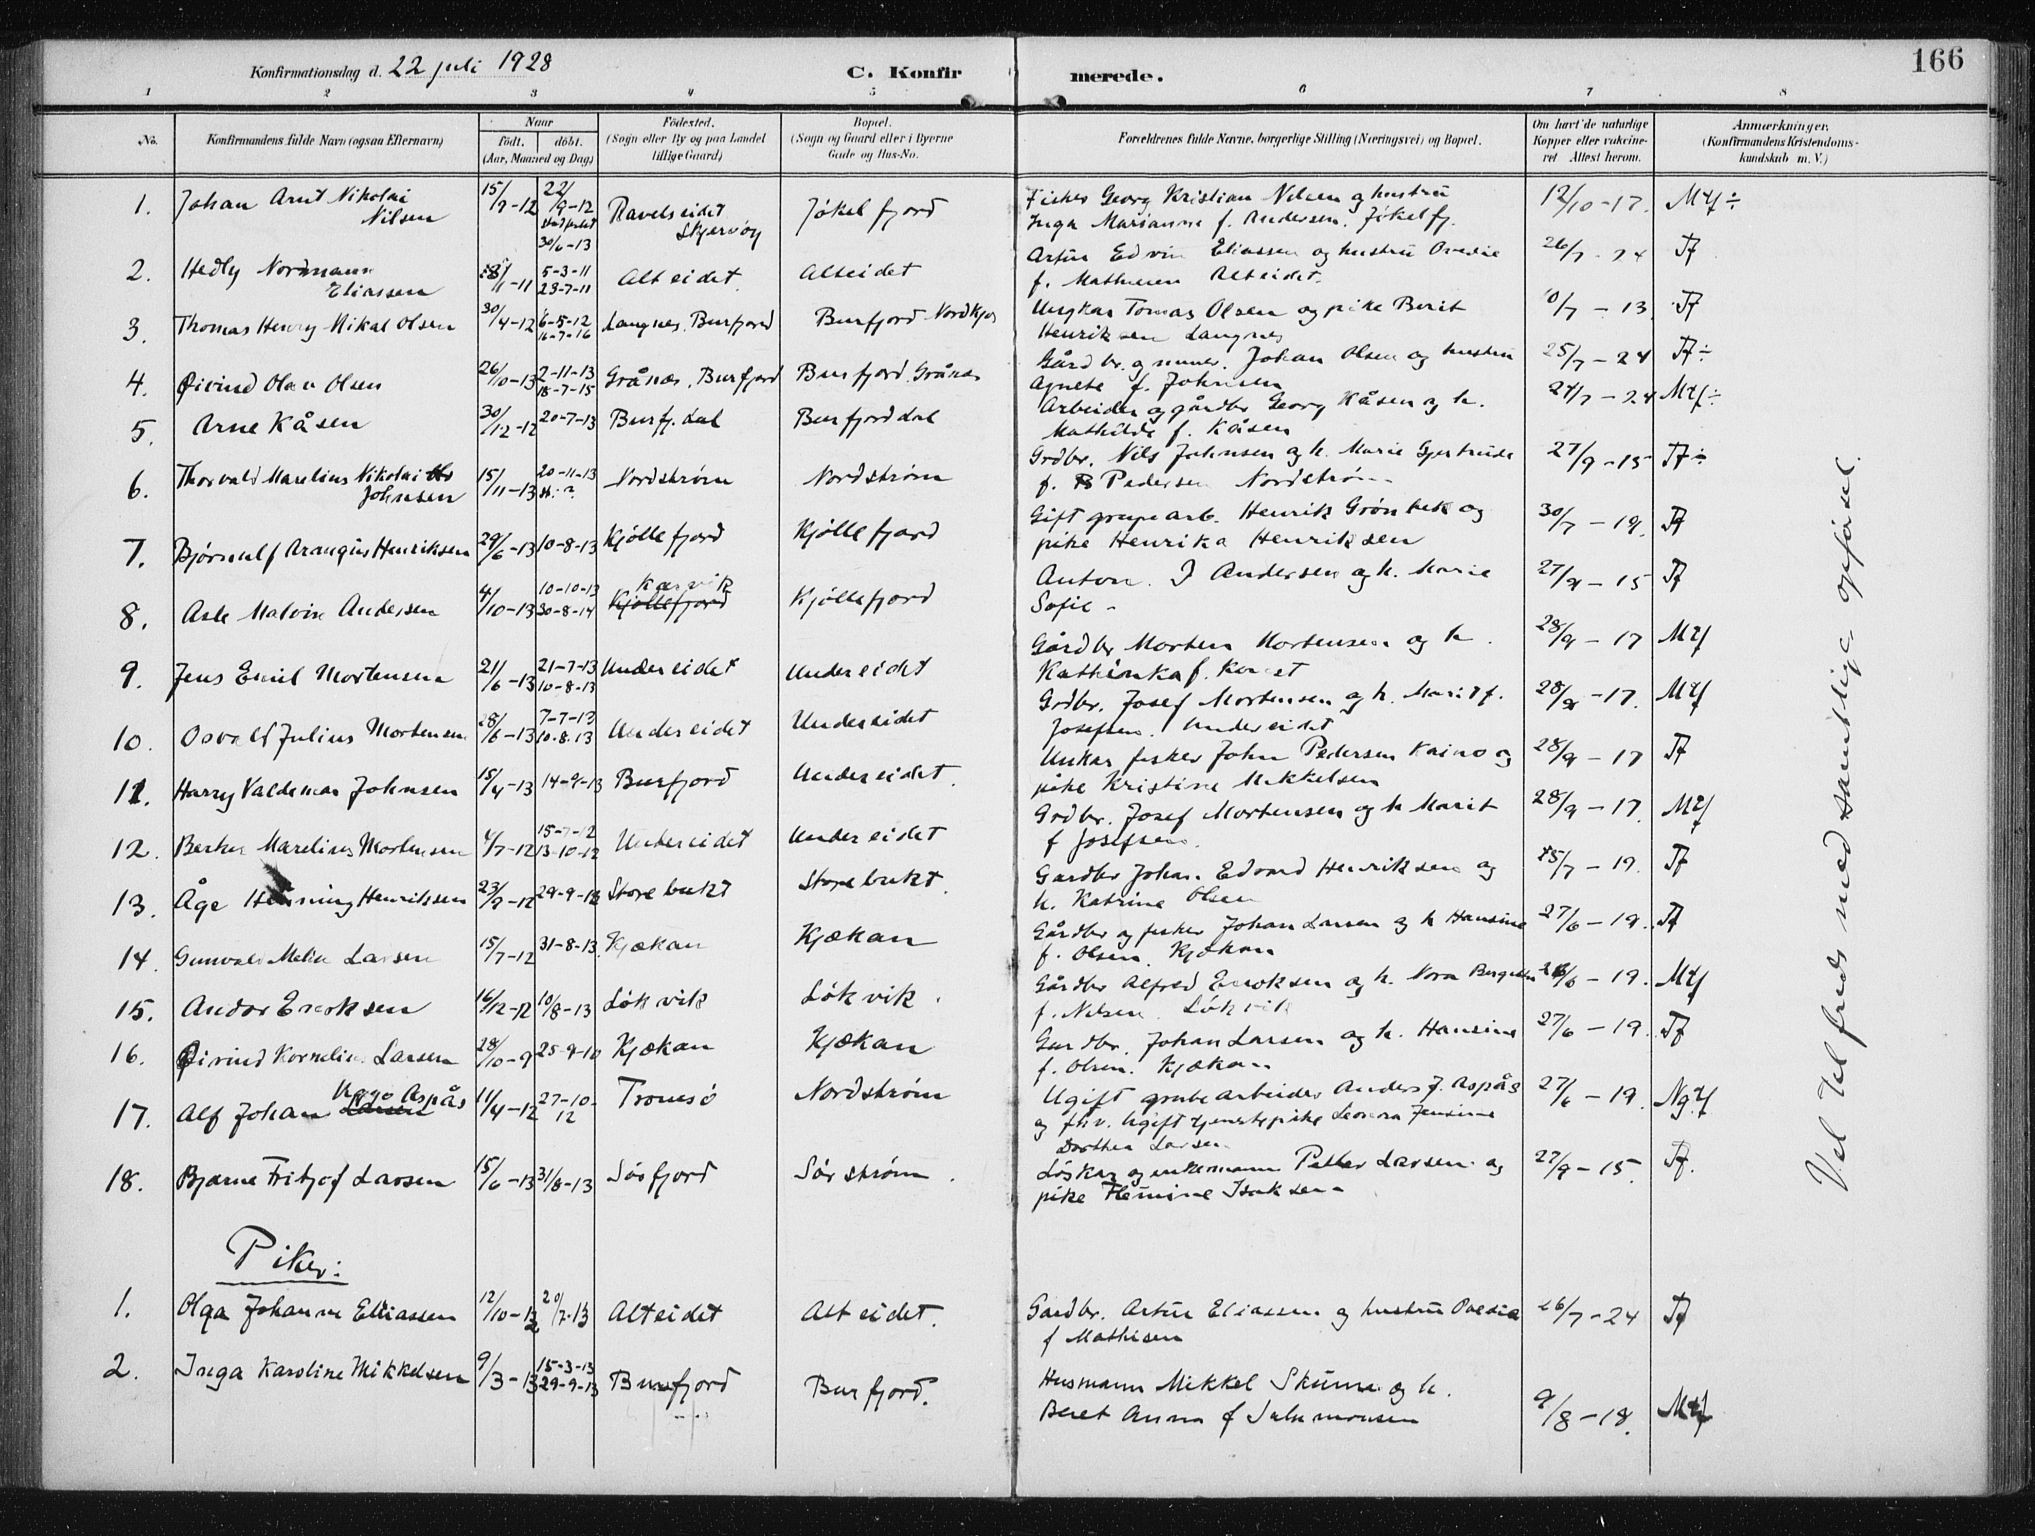 166
Konfirmationsdag d. 22 juli 1928 C. Konfirmerede.
1 2 3 4 5 6 7 8
No. Konfirmandens fulde Navn (ogsaa Efternavn) Naar født. døbt. (Aar, Maaned og Dag) Fødested. (Sogn eller By og paa Landet tillige Gaard) Bopæl. (Sogn og Gaard eller i Byerne Gade og Hus-No. Forældrenes fulde Navne, borgerlige Stilling (Næringsvei) og Bopæl. Om havt de naturlige Kopper eller vakcineret Attest herom. Anmærkninger. (Konfirmandens Kristendomskundskab m. V.)
1. Johan Arnt Nikolai Nilsen 15/9-12 22/9-12 30/6-13 Ravelseidet Skjervøy Jøkelfjord Fisker Georg Kristian Nilsen og hustru
Inga Marianne f. Andersen. Jøkelfj. 12/10-17. Mtf ÷
2. Hedly Normann Eliassen 28/1-11 5-3-11 23-7-11 Alteidet. Alteidet Artur Edvin Eliassen og hustru Ovedie
f. Mathisen Alteidet. 26/7-24 Tf
3. Thomas Henry Mikal Olsen 30/4-12 6-5-12 16-7-16 Langnes, Burfjord Burfjord Ungkar Tomas Olsen og pike Berit
Henriksen Langnes 10/7-13 Tf
4. Øivind Olav Olsen 26/10-13 2-11-13 18-7-15 Grånes, Burfjord Burfjord, Grånes Gårdbr. og Johan Olsen og hustru
Agnete f. Johnsen 25/7-24 Tf ÷
5. Arne Kåsen 30/12-12 20-7-13 Burfj.dal Burfjorddal Arbeider og gårdbr Georg Kåsen og h.
Mathilde f. Kåsen 24/7-24 Mtf ÷
6. Thorvald Marelius Nikolai Johnsen 15/11-13 20-11-13 st: ? Nordstrøm Nordstrøm Grdbr. Nils Johnsen og h. Marie Gjertrude
f. Pedersen Nordstrøm 27/9-15 Tf ÷
7. Bjørnulf Henriksen 29/6-13 10-8-13 Kjøllefjord Kjøllefjord Gift grupearb. Henrik Grønbek og
pike Henrika Henriksen 30/7-19. Tf
8. Asle Malvin Andersen 4/10-13 10-10-13 30-8-14 Kjøllefjord Kjøllefjord Anton. J Andersen og h. Marie
Sofie - 27/9-15 Tf
9. Jens Emil Mortensen 21/6-13 21-7-13 10-8-13 Undereidet Undereidet Gårdbr Morten Mortensen og h.
Kathinka f. 28/9-17 Mtf
10. Osvald Julius Mortensen 28/6-13 7-7-13 10-8-13 Undereidet Undereidet Grdbr. Josef Mortensen og h. Marit f.
Josefsen. Undereidet 28/9-17. Mtf
11. Harry Valdemar Johnsen 15/4-13 14-9-13 Burfjord Undereidet. Unkar fisker John Pedersen Kaino og
pike Kristine Mikkelsen 28/9-17 Tf
12. Marelius Mortensen 4/7-12 15-7-12 13-10-12 Undereidet Undereidet Grdbr. Josef Mortensen og h Marit
f Josefsen. 28/9-17. Mtf
13. Åge Henning Henriksen 23/9-12 29-9-13 Storebukt Storebukt. Gardbr Johan Edvard Henriksen og
h. Katrine Olsen 15/7-19. Tf
14. Gunvald Larsen 15/7-12 31-8-13. Kjækan Kjækan Gårdbr og fisker Johan Larsen og h Hansine
f. Olsen. Kjækan 27/6-19. Tf
15. Andor Enoksen 16/12-12 10/8-13 Løkvik Løkvik. Gårdbr Alfred Enoksen og h. Nora
f. Nilsen. Løkvik /6-19. Mtf
16. Øivind Larsen 28/10-9 25-9-10 Kjækan Kjækan Gardbr. Johan Larsen og h. Hansine
f. Olsen. Kjækan 27/6-19. Tf
17. Alf Johan Aspås 11/4-12 27-10-12 Tromsø Nordstrøm Ugift grubearbeider Anders J. Aspås
og fhv. Ugift tjenestepike Leonora Jensine
Dorthea Larsen 27/6-19. Ngtf
18. Bjarne Fritjof Larsen 15/6-13 31/8-13 Sørfjord Sørstrøm. Løskar og enkemann Petter Larsen og
pike Flemine Isaksen 27/9-15. Tf.
Piker:
1. Olga Johanne Eliassen 12/10-12 20/7-13 Alteidet Alteidet. Gardbr. Artur Eliassen og hustru Ovedie
f Mathisen 26/7-24 Tf
2. Inga Karoline Mikkelsen 9/3-13 15-3-13 29-9-13 Burfjord Burfjord. Husmann Mikkel og h.
Beret Anna f Salamonsen 9/8-18. Mtf
Vel tilfreds med samtlige opførsel.